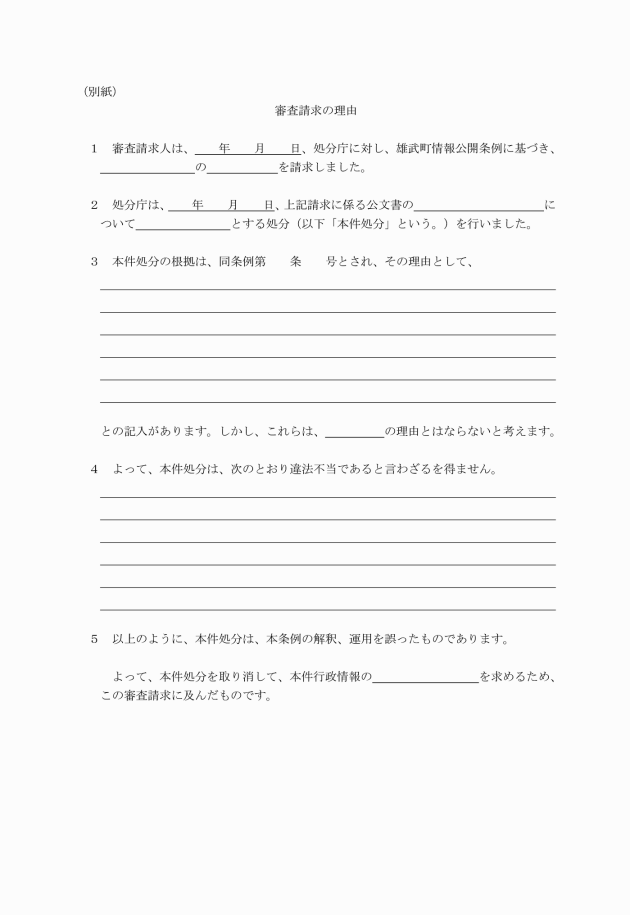 （別紙）
審査請求の理由
１　審査請求人は、　　年　　月　　日、処分庁に対し、雄武町情報公開条例に基づき、
の　　　　　　を請求しました。
２　処分庁は、　　年　　月　　日、上記請求に係る公文書の　　　　　　　　　　　に
ついて　　　　　　　　とする処分（以下「本件処分」という。）を行いました。
３　本件処分の根拠は、同条例第　　条　　号とされ、その理由として、
との記入があります。しかし、これらは、　　　　　の理由とはならないと考えます。
４　よって、本件処分は、次のとおり違法不当であると言わざるを得ません。
５　以上のように、本件処分は、本条例の解釈、運用を誤ったものであります。
よって、本件処分を取り消して、本件行政情報の　　　　　　　　　を求めるため、
この審査請求に及んだものです。